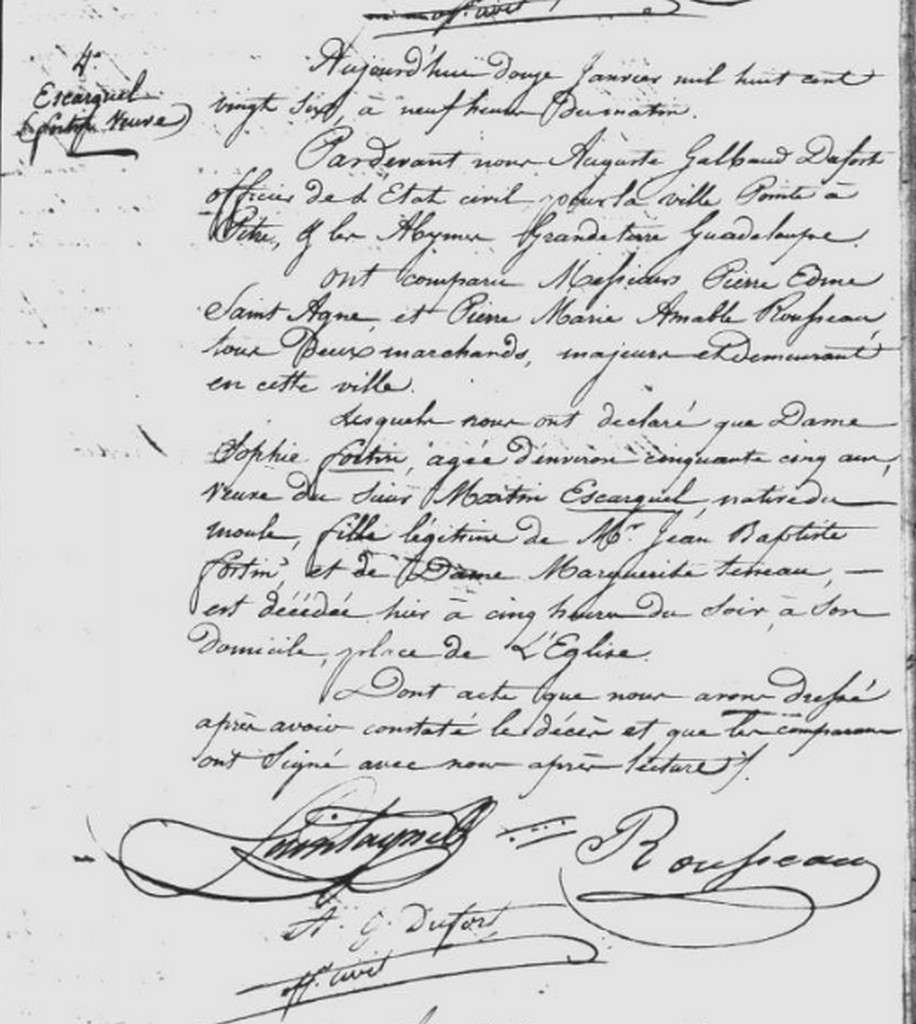 off. civil
4.
Escarguel
(fortin Veuve)
Aujourd'hui douze Janvier mil huit cent
vingt Six, à neuf heures Du matin.
Pardevant nous Auguste Galbaud Dufort
officier de L'Etat civil pour la ville Pointe à
Pitre, & les Abymes Grandeterre Guadeloupe.
ont comparu Messieurs Pierre Edme
Saint Agne, et Pierre Marie Amable Rousseau,
tous Deux marchands, majeurs et demeurant
en cette ville.
Lesquels nous ont déclaré que Dame
Sophie fortin, agée d'environ cinquante cinq ans,
veuve du Sieur Martin Escarguel, native du
moule, fille légitime de Mr. Jean Baptiste
fortin, et de Dame Marguerite terreau, —
est décédée hier à cinq heures du Soir, à Son
Domicile, place de L'Eglise.
Dont acte que nous avons dressé
après avoir constaté le décès et que les comparans
ont Signé avec nous après lecture ./.
Saintagne
Rousseau
A. G. Dufort
off. civil